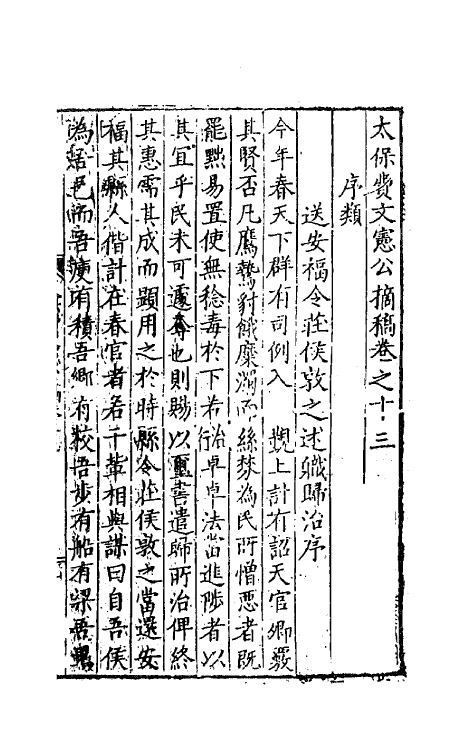 太保費文憲公摘稿卷之十三
序類
送安福令莊侯敦之述職歸治序
今年春天下群有司例入 覲上計有詔天官卿覈
其賢否凡鷹鷙豺餓糜潤而絲棼為民所憎惡者既
罷黜易置使無稔毒於下若治行卓卓法當進陟者以
其宜乎民未可遽奪也則賜以璽書遣歸所治俾終
其惠需其成而顯用之於時縣令莊侯敦之當還安
福其縣人偕計在春官者若干輩相與謀曰自吾侯
為吾邑而吾廋有積吾鄉有校吾步有船有梁吾